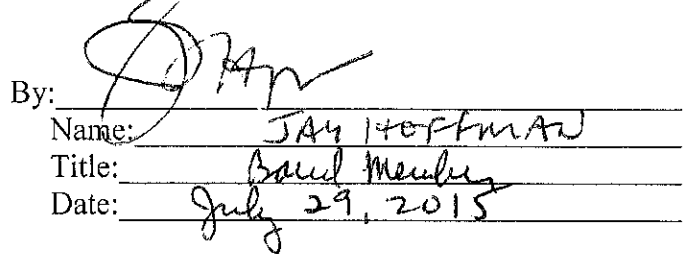 By:
Name: JAY HOFFMAN
Title: Board Member
Date: July 29, 2015